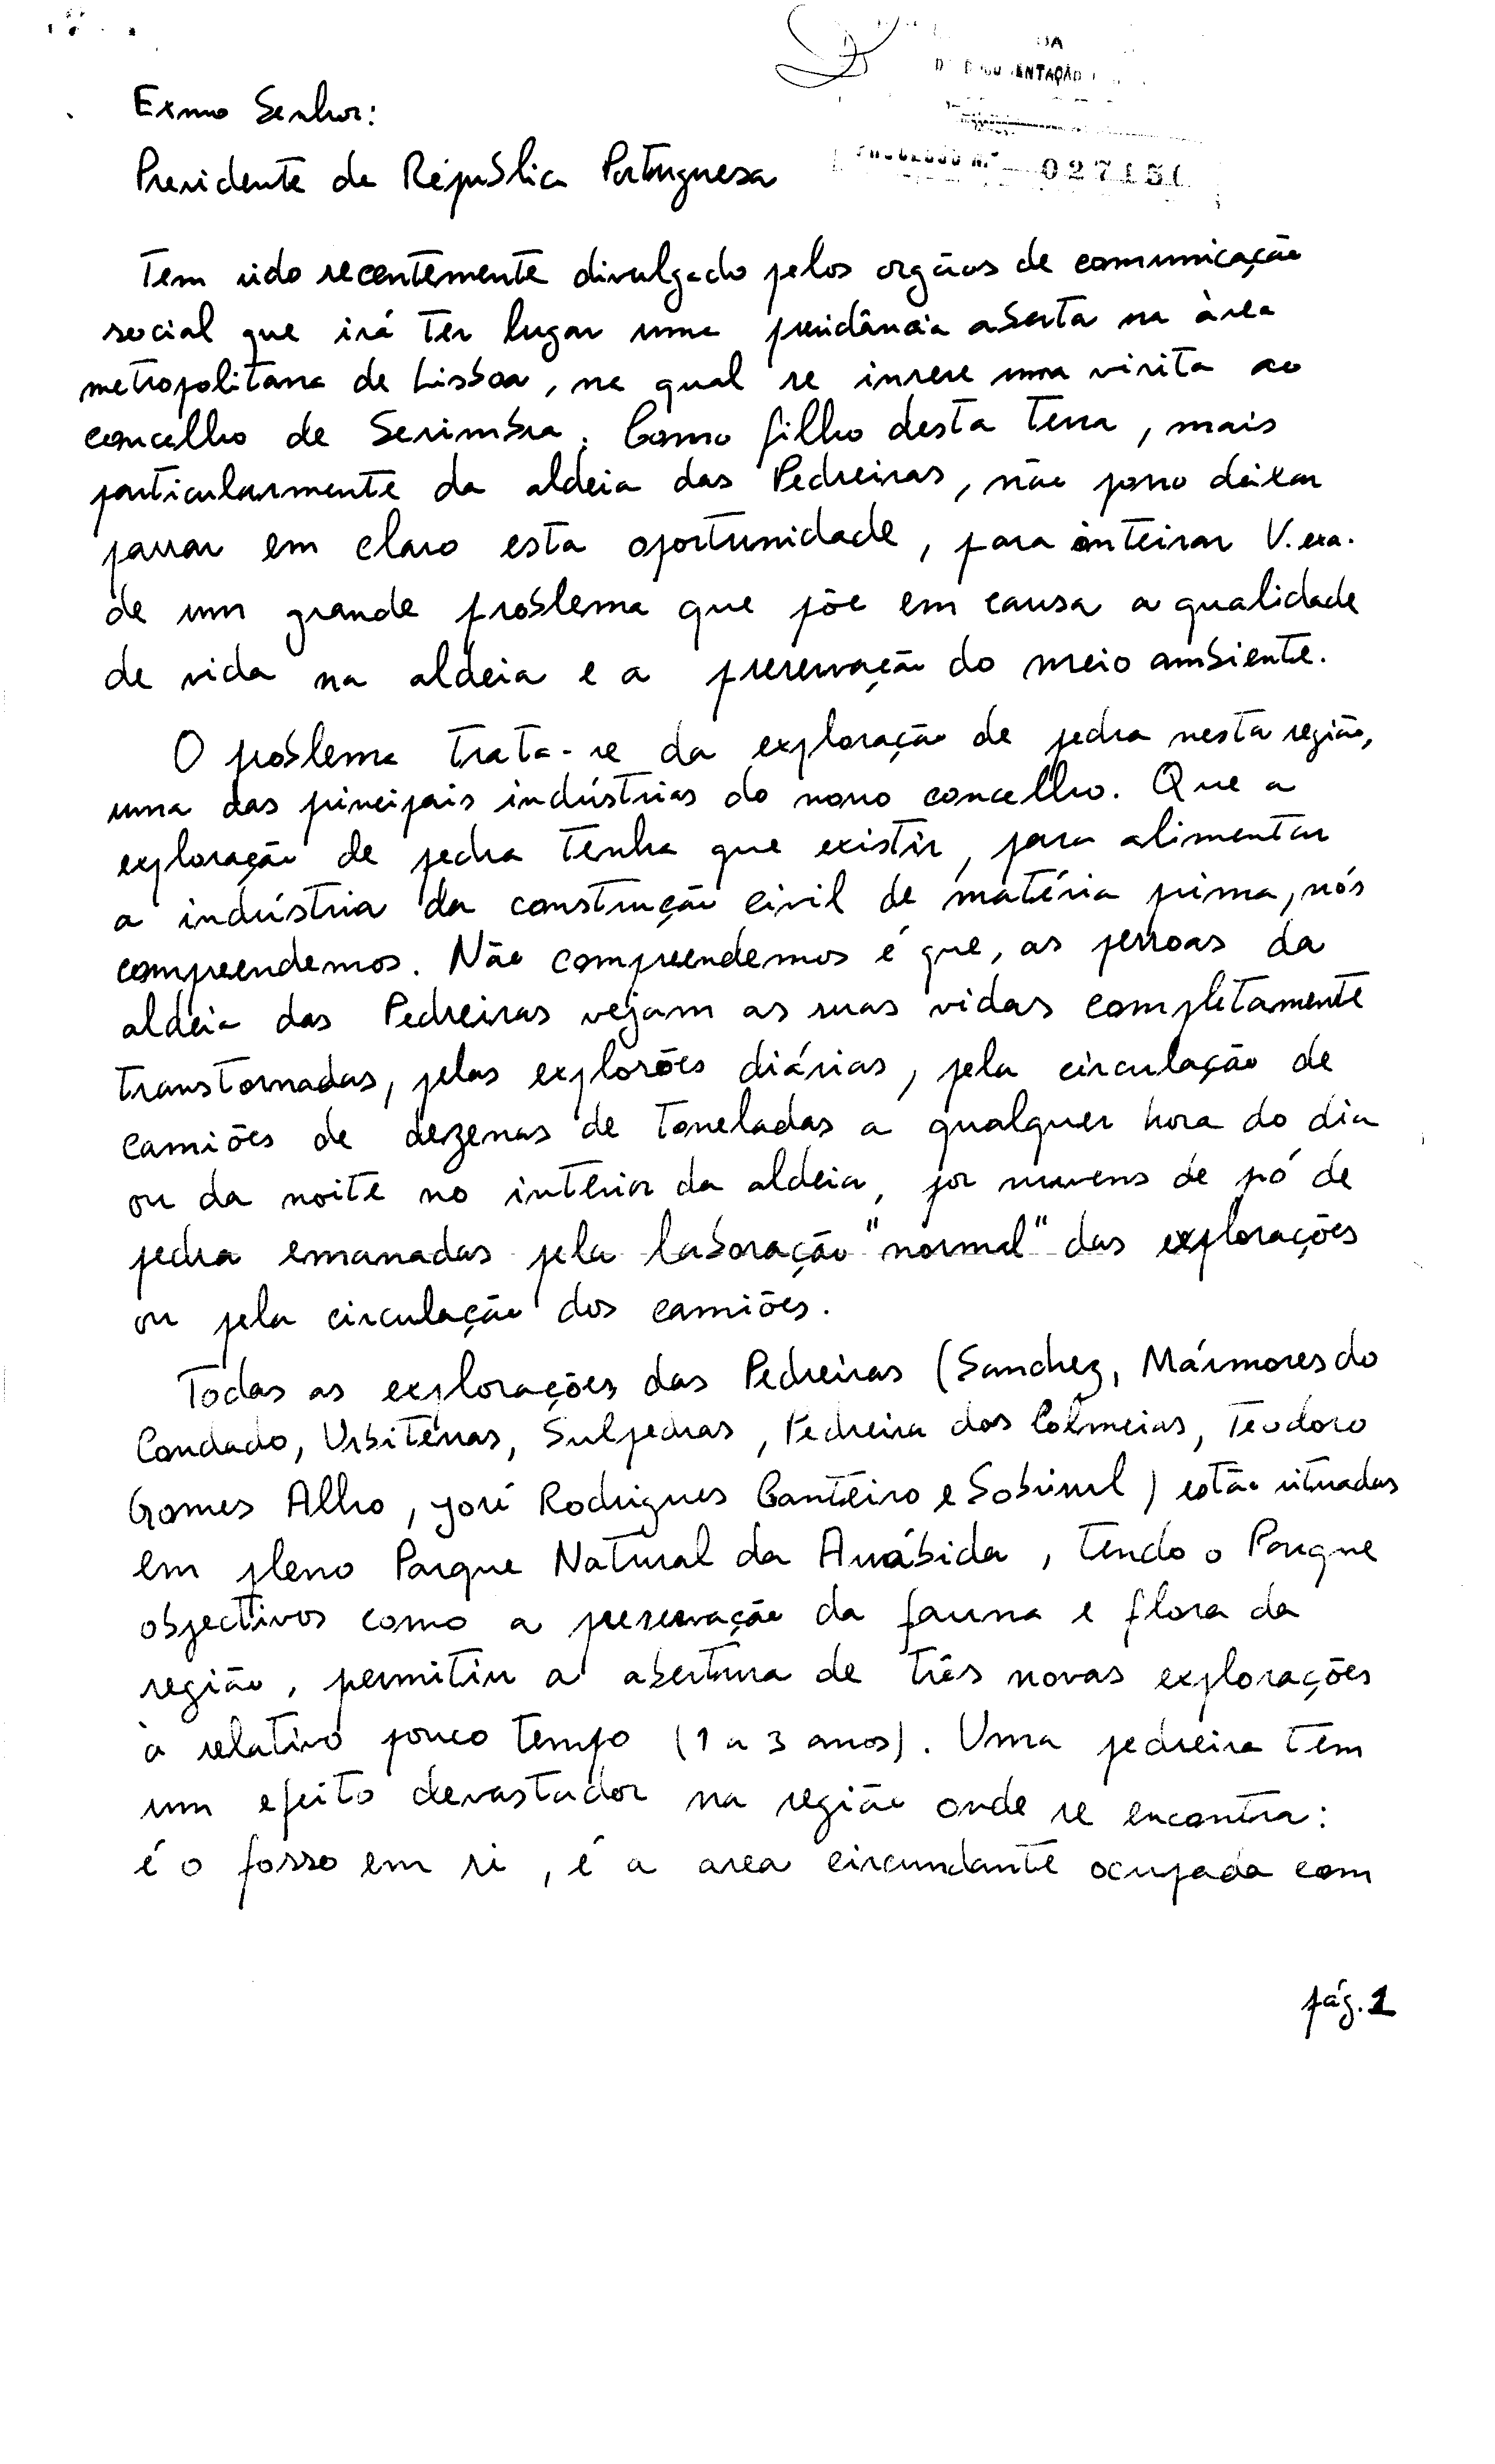 DA
ENTAÇÃO
Nº 027151
Exmo Senhor:
Presidente da República Portuguesa
Tem sido recentemente divulgado pelos orgãos de comunicação
social que irá ter lugar uma presidância aberta na àrea
metropolitana de Lisboa, na qual se insere uma visita ao
concelho de Sesimbra. Como filho desta terra, mais
particularmente da aldeia das Pedreiras, não posso deixar
passar em claro esta oportunidade, para inteirar V. exa.
de um grande problema que põe em causa a qualidade
de vida na aldeia e a preservação do meio ambiente.
O problema trata-se da exploração de pedra nesta região,
uma das principais indústrias do nosso concelho. Que a
exploração de pedra tenha que existir, para alimentar
a indústria da construção civil de matéria prima, nós
compreendemos. Não compreendemos é que, as pessoas da
aldeia das Pedreiras vejam as suas vidas completamente
transtornadas, pelas explosões diárias, pela circulação de
camiões de dezenas de toneladas a qualquer hora do dia
ou da noite no interior da aldeia, por nuvens de pó de
pedra emanadas pela laboração "normal" das explorações
ou pela circulação dos camiões.
Todas as explorações das Pedreiras (Sanchez, Mármores do
Condado, Urbiterras, Sulpedras, Pedreira das Colmeias, Teodoro
Gomes Alho, José Rodrigues Canteiro e Sobrisul) estão situadas
em pleno Parque Natural da Arrábida, tendo o Parque
objectivos como a preservação da fauna e flora da
região, permitiu a abertura de três novas explorações
à relativo pouco tempo (1 a 3 anos). Uma pedreira tem
um efeito devastador na região onde se encontra:
é o fosso em si, é a area circundante ocupada com
pág. 1